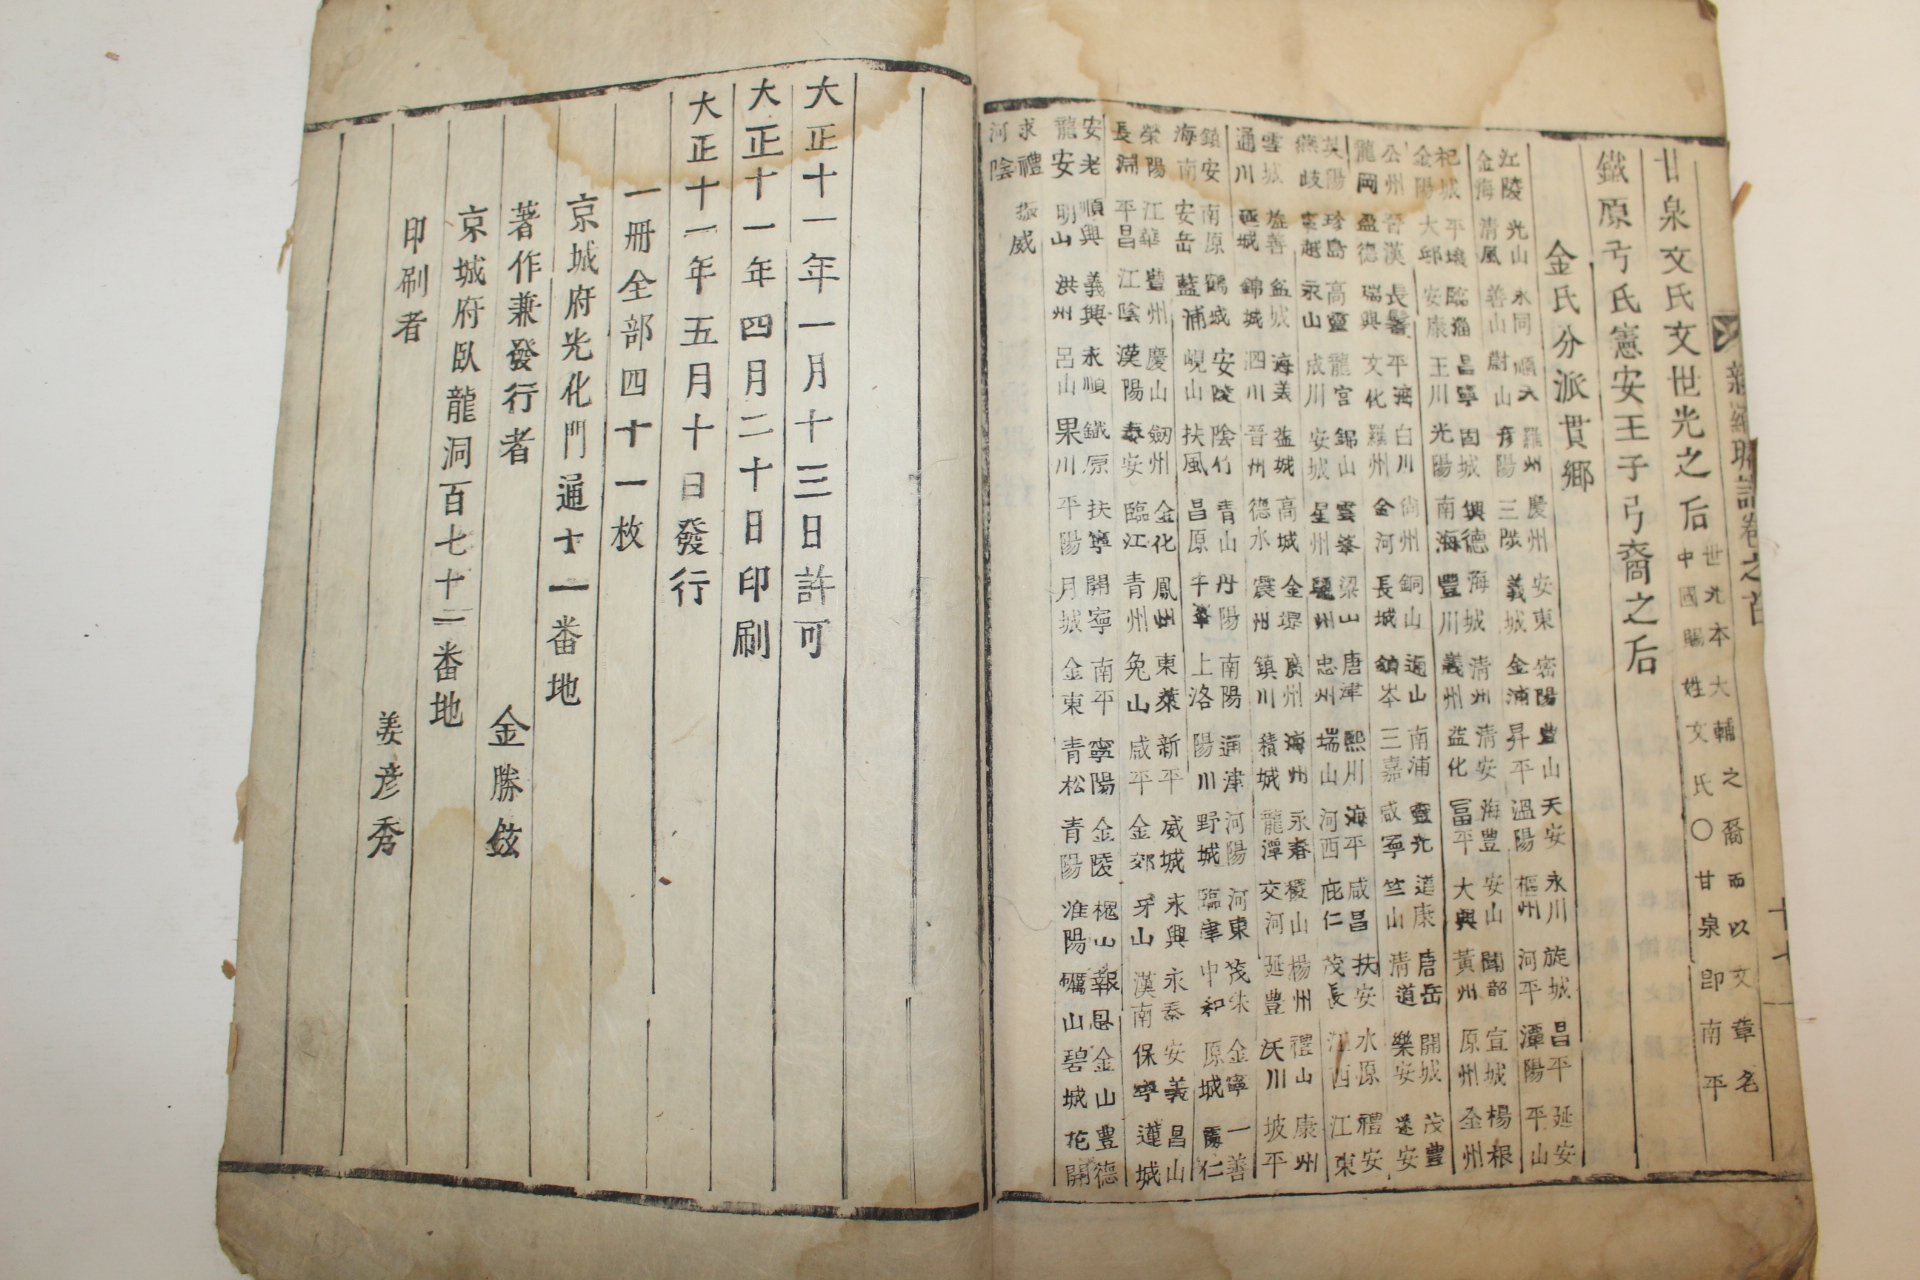 甘泉文氏文世光之后世光本大輔之裔而以文章名
中國賜姓文氏〇甘泉卽南平
鐵原弓氏憲安王子弓裔之后
金氏分派貫鄕
江陵 光山 永同 順天 羅州 慶州 安東 密陽 豊山 天安 永川 旋城 昌平 延安
金海 淸風 善山 尉山 彦陽 三陟 義城 金浦 昇平 溫陽 樞州 河平 潭陽 平山
杞城 平壤 臨淄 昌寧 固城 興德 海城 淸州 淸安 海豊 安山 聞韶 宜城 楊根
金陽 大邱 安康 王川 光陽 南海 豐川 義州 益化 富平 大興 黃州 原州 全州
公州 晉漢 長鬐 平海 白川 尙州 銅山 通山 南浦 靈光 道康 唐岳 開城 茂豊
龍岡 盈德 瑞興 文化 羅州 金河 長城 鎭岑 三嘉 咸寧 竺山 淸道 樂安 遂安
英陽 珍島 高靈 龍宮 錦山 雲峯 梁山 唐津 熙川 海平 咸昌 扶安 水原 禮安
燕岐 寧越 永山 成川 安城 星州 驪州 忠州 瑞山 河西 庇仁 茂長 江西 江東
雲城 旌善 盆城 海美 益城 高城 金堤 廣州 海州 永春 稷山 楊州 禮山 康州
通川 延城 錦城 泗川 晉州 德水 震州 鎭川 積城 龍潭 交河 延豊 沃川 坡平
鎭安 南原 鶴城 安陵 陰竹 靑山 丹陽 南陽 通津 河陽 河東 茂朱 金寧 一善
海南 安岳 藍浦 峴山 扶風 昌原 牛峯 上洛 陽川 野城 臨津 中和 原城 陽仁
榮陽 江華 豐州 慶山 劒州 金化 鳳州 東萊 新平 威城 永興 永泰 安義 昌山
長淵 平昌 江陰 漢陽 泰安 臨江 靑州 兔山 咸平 金郊 牙山 漢南 保寧 蓮城
安老 順興 義興 永順 鐵原 扶寧 開寧 南平 寧陽 金陵 槐山 報恩 金山 豊德
龍安 明山 洪州 呂山 果川 平陽 月城 金東 靑松 靑陽 淮陽 礪山 碧城 花開
求禮 振威
河陰
大正十一年一月十三日許可
大正十一年四月二十日印刷
大正十一年五月十日發行
一冊全部四十一枚
京城府光化門通十一番地
著作兼發行者 金勝鉉
京城府臥龍洞百七十二番地
印刷者 姜彦秀